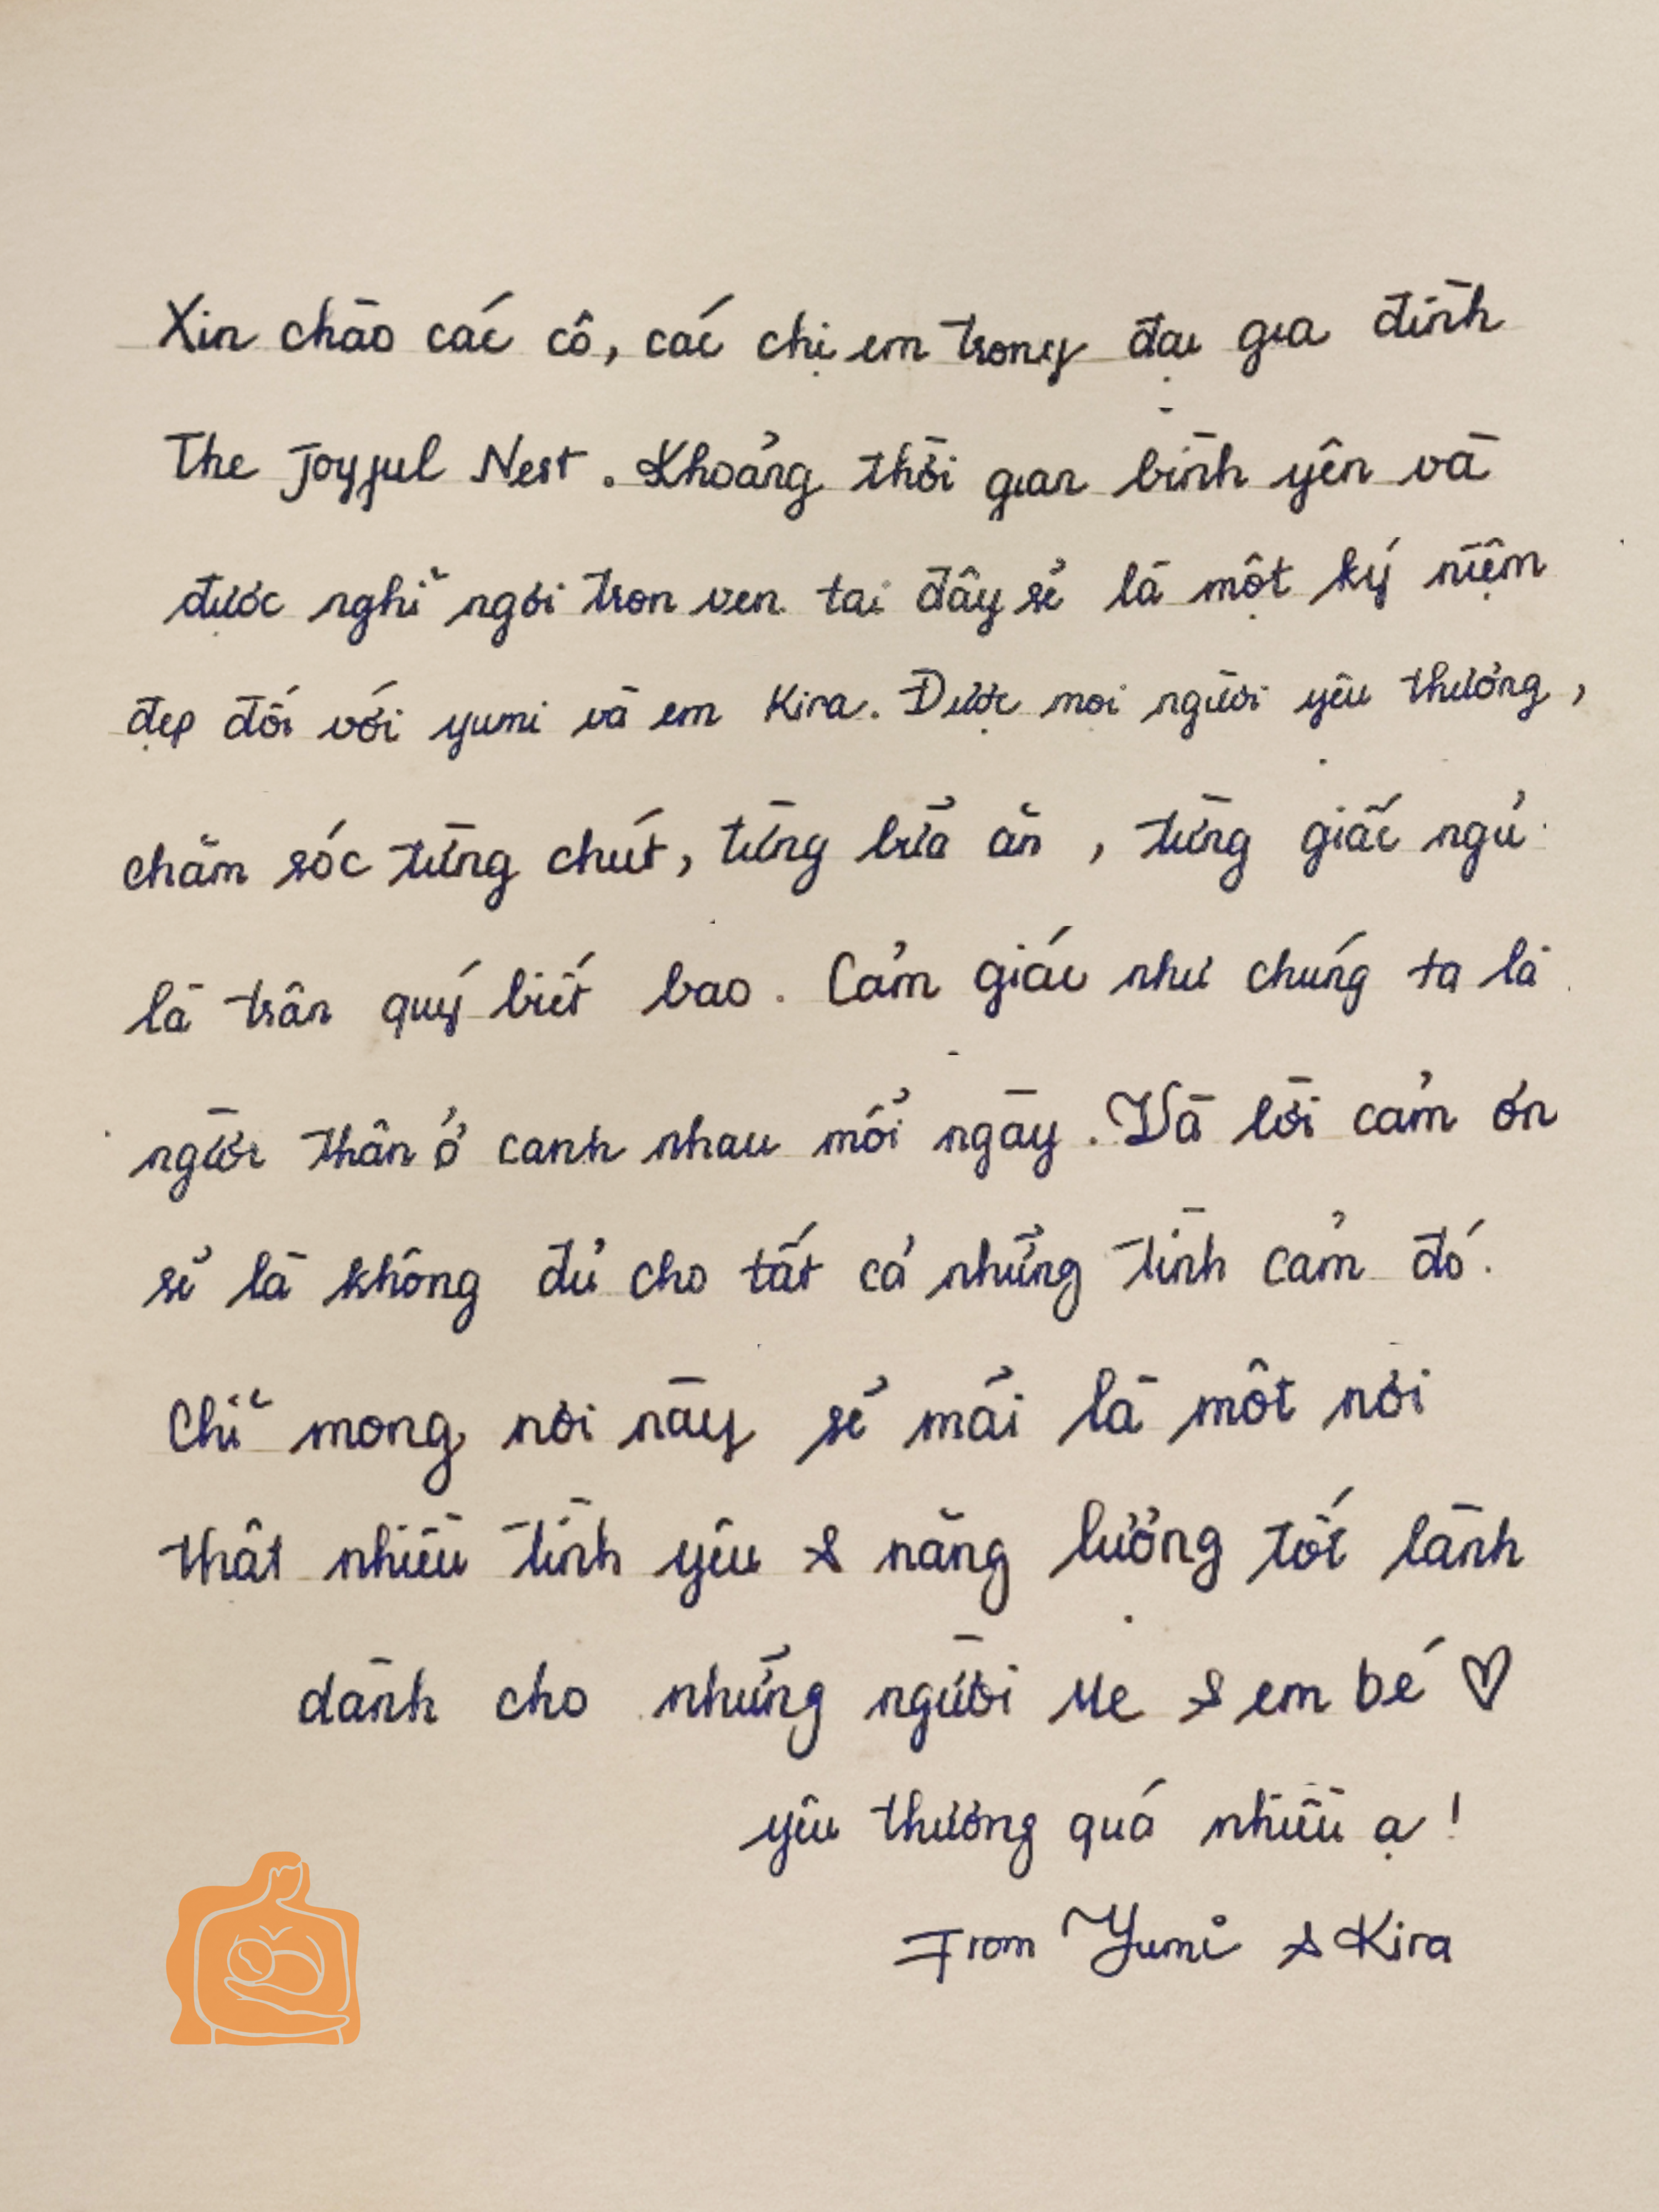 Xin chào các cô, các chị em trong đại gia đình
The Joyful Nest. Khoảng thời gian bình yên và
được nghỉ ngơi trọn vẹn tại đây sẽ là một ký niệm
đẹp đối với yumi và em Kira. Được mọi người yêu thương,
chăm sóc từng chút, từng bữa ăn, từng giấc ngủ
là trân quý biết bao. Cảm giác như chúng ta là
người thân ở cạnh nhau mỗi ngày. Và lời cảm ơn
sẽ là không đủ cho tất cả những tình cảm đó.
Chỉ mong nơi này sẽ mãi là một nơi
thật nhiều tình yêu & năng lượng tốt lành
dành cho những người Mẹ & em bé ♡
yêu thương quá nhiều ạ!
From Yumi & Kira